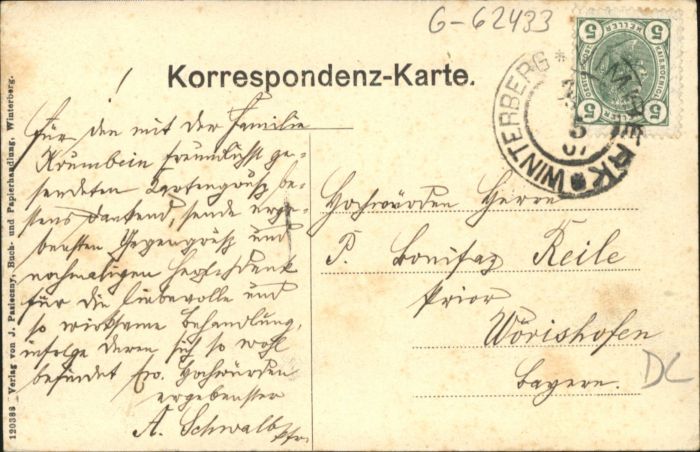 G-62433
Korrespondenz-Karte.
WINTERBERG * WINTERBERK
5
07
5 HELLER 5
5 5
!
Für den mit der Familie
Krumbein freundlichst ge-
sendeten Kartengruß be-
stens dankend, sende erge-
bensten Gegengruß und
nochmaligen Herzlichdank
für die liebevolle und
so wirksame Behandlung,
infolge deren sich so wohl
befindet Ew. Hochwürden
ergebenster
A. Schwalb
Hochwürden Herrn
P. Bonifaz Reile
Prior
Wörishofen
Bayern.
DC
120388 - Verlag von J. Pasiecsny, Buch- und Papierhandlung, Winterberg.